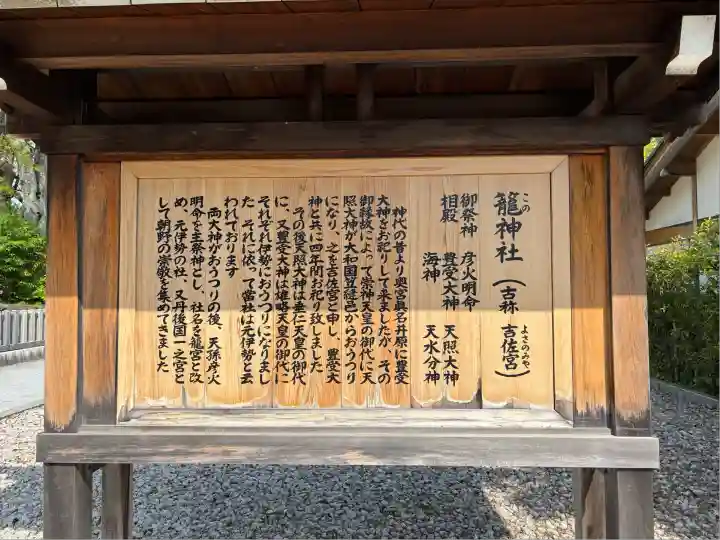 籠神社(古称 吉佐宮)
この
よさのみや
御祭神 彦火明命
相殿 豊受大神 天照大神
海神 天水分神
神代の昔より奥宮眞名井原に豊受
大神さお祀りして来ましたが、その
御縁故によって崇神天皇の御代に天
照大神が大和国笠縫邑からおうつり
になり、之を吉佐宮と申し、豊受大
神と共に四年間お祀り致しました
その後天照大神は垂仁天皇の御代
に、又豊受大神は雄略天皇の御代に
それぞれ伊勢におうつりになりまし
た。それに依って當社は元伊勢と云
われております
両大神がおうつりの後、天孫彦火
明命を主祭神とし、社名を籠宮と改
め、元伊勢の社、又丹後国一之宮と
して朝野の崇敬を集めてきました